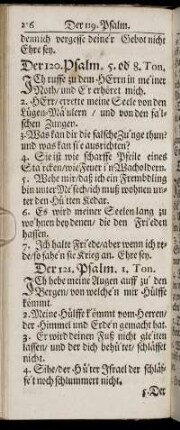 216 Der 119. Psalm.
dennich vergesse deine'r Gebot nicht
Ehre sey.
Der 120. Psalm. 5. od 8. Ton,
ICh ruffe zu dem HErrn in me'iner
Noth/ und E'r erhöret mich.
2. HErr/ errette meine Seele von den
Lügen-Mä'ulern / und von den fa'l-
schen Zungen.
3. Was kan dir die falsche Zu'nge thun?
und was kan si'e ausrichten?
4. Sie ist wie scharffe Pfeile eines
Sta'rcken/ wie Feuer i'n Wachholdern.
5. Wehe mir/ daß ich ein Fremdd'ling
bin unter Me'sech/ ich muß wohnen un-
ter den Hü'tten Kedar.
6. Es wird meiner Seelen lang zu
wo'hnen bey denen/ die den Fri'eden
hassen.
7. Ich halte Fri'ede/ aber wenn ich re-
de/ so fahe'n sie Krieg an. Ehre sey.
Der 121. Psalm. 1. Ton.
ICh hebe meine Augen auff zu' den
Bergen/ von welche'n mir Hülffe
kömmt.
2. Meine Hülffe kömmt vom Herren/
der Himmel und Erde'n gemacht hat.
3. Er wird deinen Fuß nicht gle'iten
lassen/ und der dich behü'tet/ schläffet
nicht.
4. Sihe/ der Hü'ter Israel der schläf-
fe't noch schlummert nicht.
5. Der